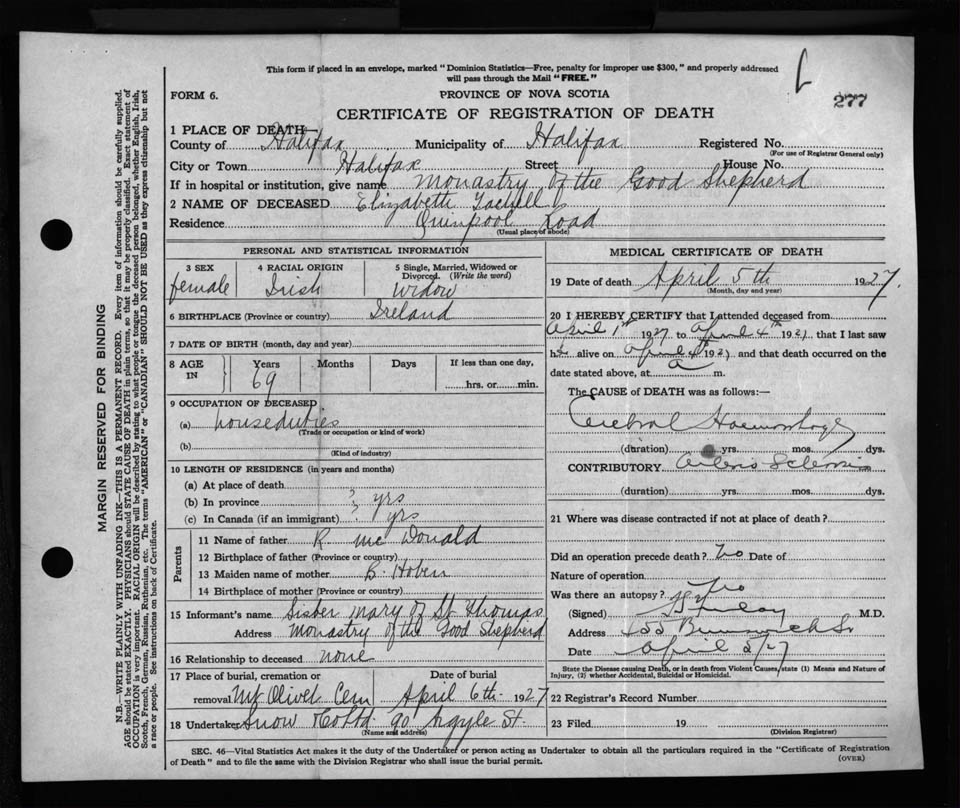 This form if placed in an envelope, marked "Dominion Statistics—Free, penalty for improper use $300," and properly addressed
will pass through the Mail "FREE."
277
FORM 6.
PROVINCE OF NOVA SCOTIA
CERTIFICATE OF REGISTRATION OF DEATH
1 PLACE OF DEATH—
County of Halifax Municipality of Halifax Registered No.
(For use of Registrar General only)
City or Town Halifax Street House No.
If in hospital or institution, give name Monastry of the Good Shepherd
2 NAME OF DECEASED Elizabeth
Residence Quinpool Road
(Usual place of abode)
PERSONAL AND STATISTICAL INFORMATION
3 SEX 4 RACIAL ORIGIN 5 Single, Married, Widowed or Divorced. (Write the word)
female Irish Widow
6 BIRTHPLACE (Province or country) Ireland
7 DATE OF BIRTH (month, day and year)
8 AGE IN Years Months Days If less than one day,
69 hrs. or min.
9 OCCUPATION OF DECEASED
(a) houseduties
(Trade or occupation or kind of work)
(b)
(Kind of industry)
10 LENGTH OF RESIDENCE (in years and months)
(a) At place of death
(b) In province ? yrs
(c) In Canada (if an immigrant) ? yrs
Parents
11 Name of father R. McDonald
12 Birthplace of father (Province or country)
13 Maiden name of mother B. Hoben
14 Birthplace of mother (Province or country)
15 Informant's name Sister Mary of St Thomas
Address Monastry of the Good Shepherd
16 Relationship to deceased none
17 Place of burial, cremation or Date of burial
removal Mt Olivet Cem April 6th 1927
18 Undertaker Snow & Co Ltd 90 Argyle St.
(Name and address)
MEDICAL CERTIFICATE OF DEATH
19 Date of death April 5th 1927.
(Month, day and year)
20 I HEREBY CERTIFY that I attended deceased from
April 1st 1927 to April 4th 1927, that I last saw
h alive on April 4th 1927, and that death occurred on the
date stated above, at a m.
The CAUSE of DEATH was as follows:—
Cerebral Haemorrhage
(duration) yrs. mos. dys.
CONTRIBUTORY Arterio Sclerosis
(duration) yrs. mos. dys.
21 Where was disease contracted if not at place of death?
Did an operation precede death? No Date of
Nature of operation
Was there an autopsy? No
(Signed) M.D.
Address 155 Brunswick St
Date April 5/27
State the Disease causing Death, or in death from Violent Causes, state (1) Means and Nature of
Injury, (2) whether Accidental, Suicidal or Homicidal.
22 Registrar's Record Number
23 Filed 19
(Division Registrar)
SEC. 46—Vital Statistics Act makes it the duty of the Undertaker or person acting as Undertaker to obtain all the particulars required in the "Certificate of Registration
of Death" and to file the same with the Division Registrar who shall issue the burial permit.
(OVER)
MARGIN RESERVED FOR BINDING
N.B.—WRITE PLAINLY WITH UNFADING INK—THIS IS A PERMANENT RECORD. Every item of information should be carefully supplied.
AGE should be stated EXACTLY. PHYSICIANS should STATE CAUSE OF DEATH in plain terms, so that it may be properly classified. Exact statement of
OCCUPATION is very important. RACIAL ORIGIN will be described by stating to what people or tongue the deceased person belonged, whether English, Irish,
Scotch, French, German, Russian, Ruthenian, etc. The terms "AMERICAN" or "CANADIAN" SHOULD NOT BE USED as they express citizenship but not
a race or people. See instructions on back of Certificate.